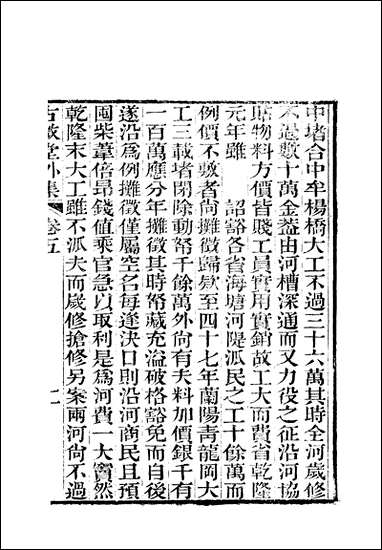 中堵合中牟楊橋大工不過三十六萬其時全河歲修
不過數十萬金蓋由河槽深通而又力役之征沿河協
貼物料方價皆賤工員實用實銷故工大而費省乾隆
元年雖　詔豁各省海塘河隄派民之工十餘萬而
例價不敷者尚攤徵歸款至四十七年蘭陽青龍岡大
工三載堵閉除動帑千餘萬外尚有夫料加價銀千有
一百萬應分年攤徵其時帑藏充溢破格豁免而自後
遂沿為例攤徵僅屬空名每遂決口則沿河商民且預
囤柴葦倍昂錢值乘官急以取利是為河費一大竇然
乾隆末大工雖不派夫而歲修搶修另案兩河尚不過
古微堂外集　卷五